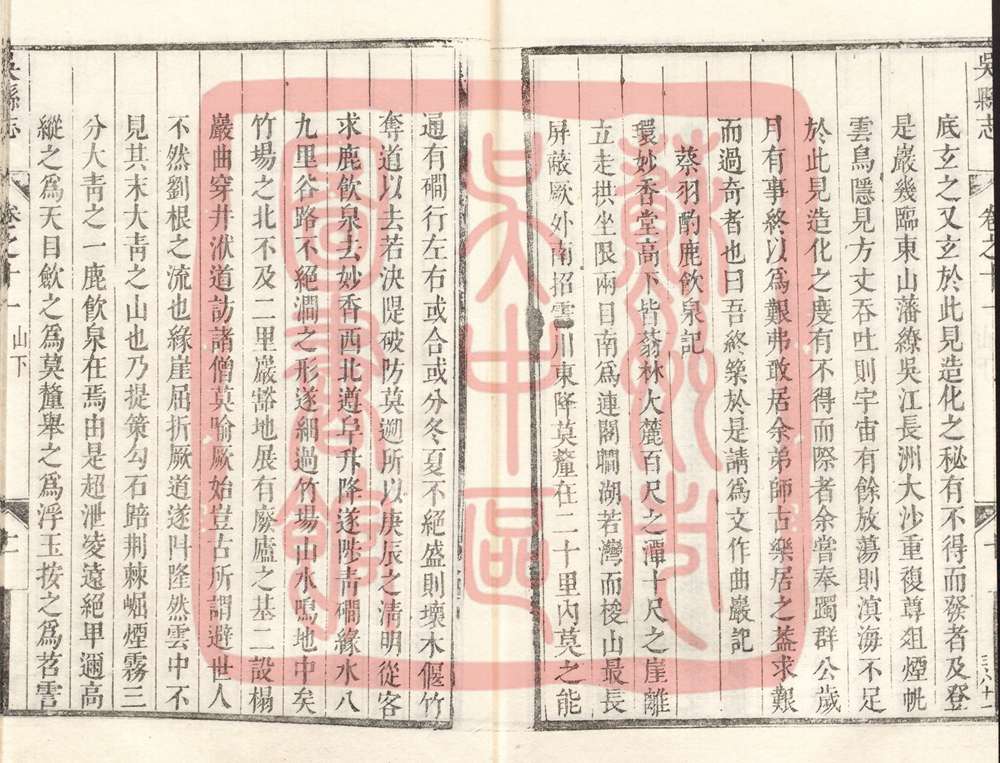 吳縣志 卷之十一
底玄之又玄於此見造化之秘有不得而發者及登
是巖幾臨東山藩繚吳江長洲大沙重複尊俎煙帆
雲鳥隱見方丈吞吐則宇宙有餘放蕩則滇海不足
於此見造化之度有不得而際者余嘗奉躅群公歲
月有事終以為艱弗敢居余弟師古樂居之蓋求艱
而過奇者也曰吾終築於是請為文作曲巖記
蔡羽酌鹿飲泉記
環妙香堂高下皆蓊林大麓百尺之潭十尺之崖離
立走拱坐限兩目南為連閣瞷湖若灣而梭山最長
屏蔽厥外南招雲川東降莫釐在二十里內莫之能
通有磵行左右或合或分冬夏不絕盛則壞木偃竹
奪道以去若決隄破防莫遡所以庚辰之清明從客
求鹿飲泉去妙香西北遵阜升降遂陟青磵緣水八
九里谷路不絕澗之形遂綢過竹場山水鳴地中矣
竹場之北不及二里巖豁地展有廢廬之基二設榻
巖曲穿井洑道訪諸僧莫喻厥始豈古所謂避世人
不然劉根之流也緣崖屈折厥道遂阧隆然雲中不
見其末大青之山也乃提策勾石踣荆棘崛煙霧三
分大青之一鹿飲泉在焉由是超泄凌遠絕甲邇高
縱之為天目斂之為莫釐舉之為浮玉按之為苕霅
吳縣志 卷之十一 山下 十二
蘇州市吳中區圖書館